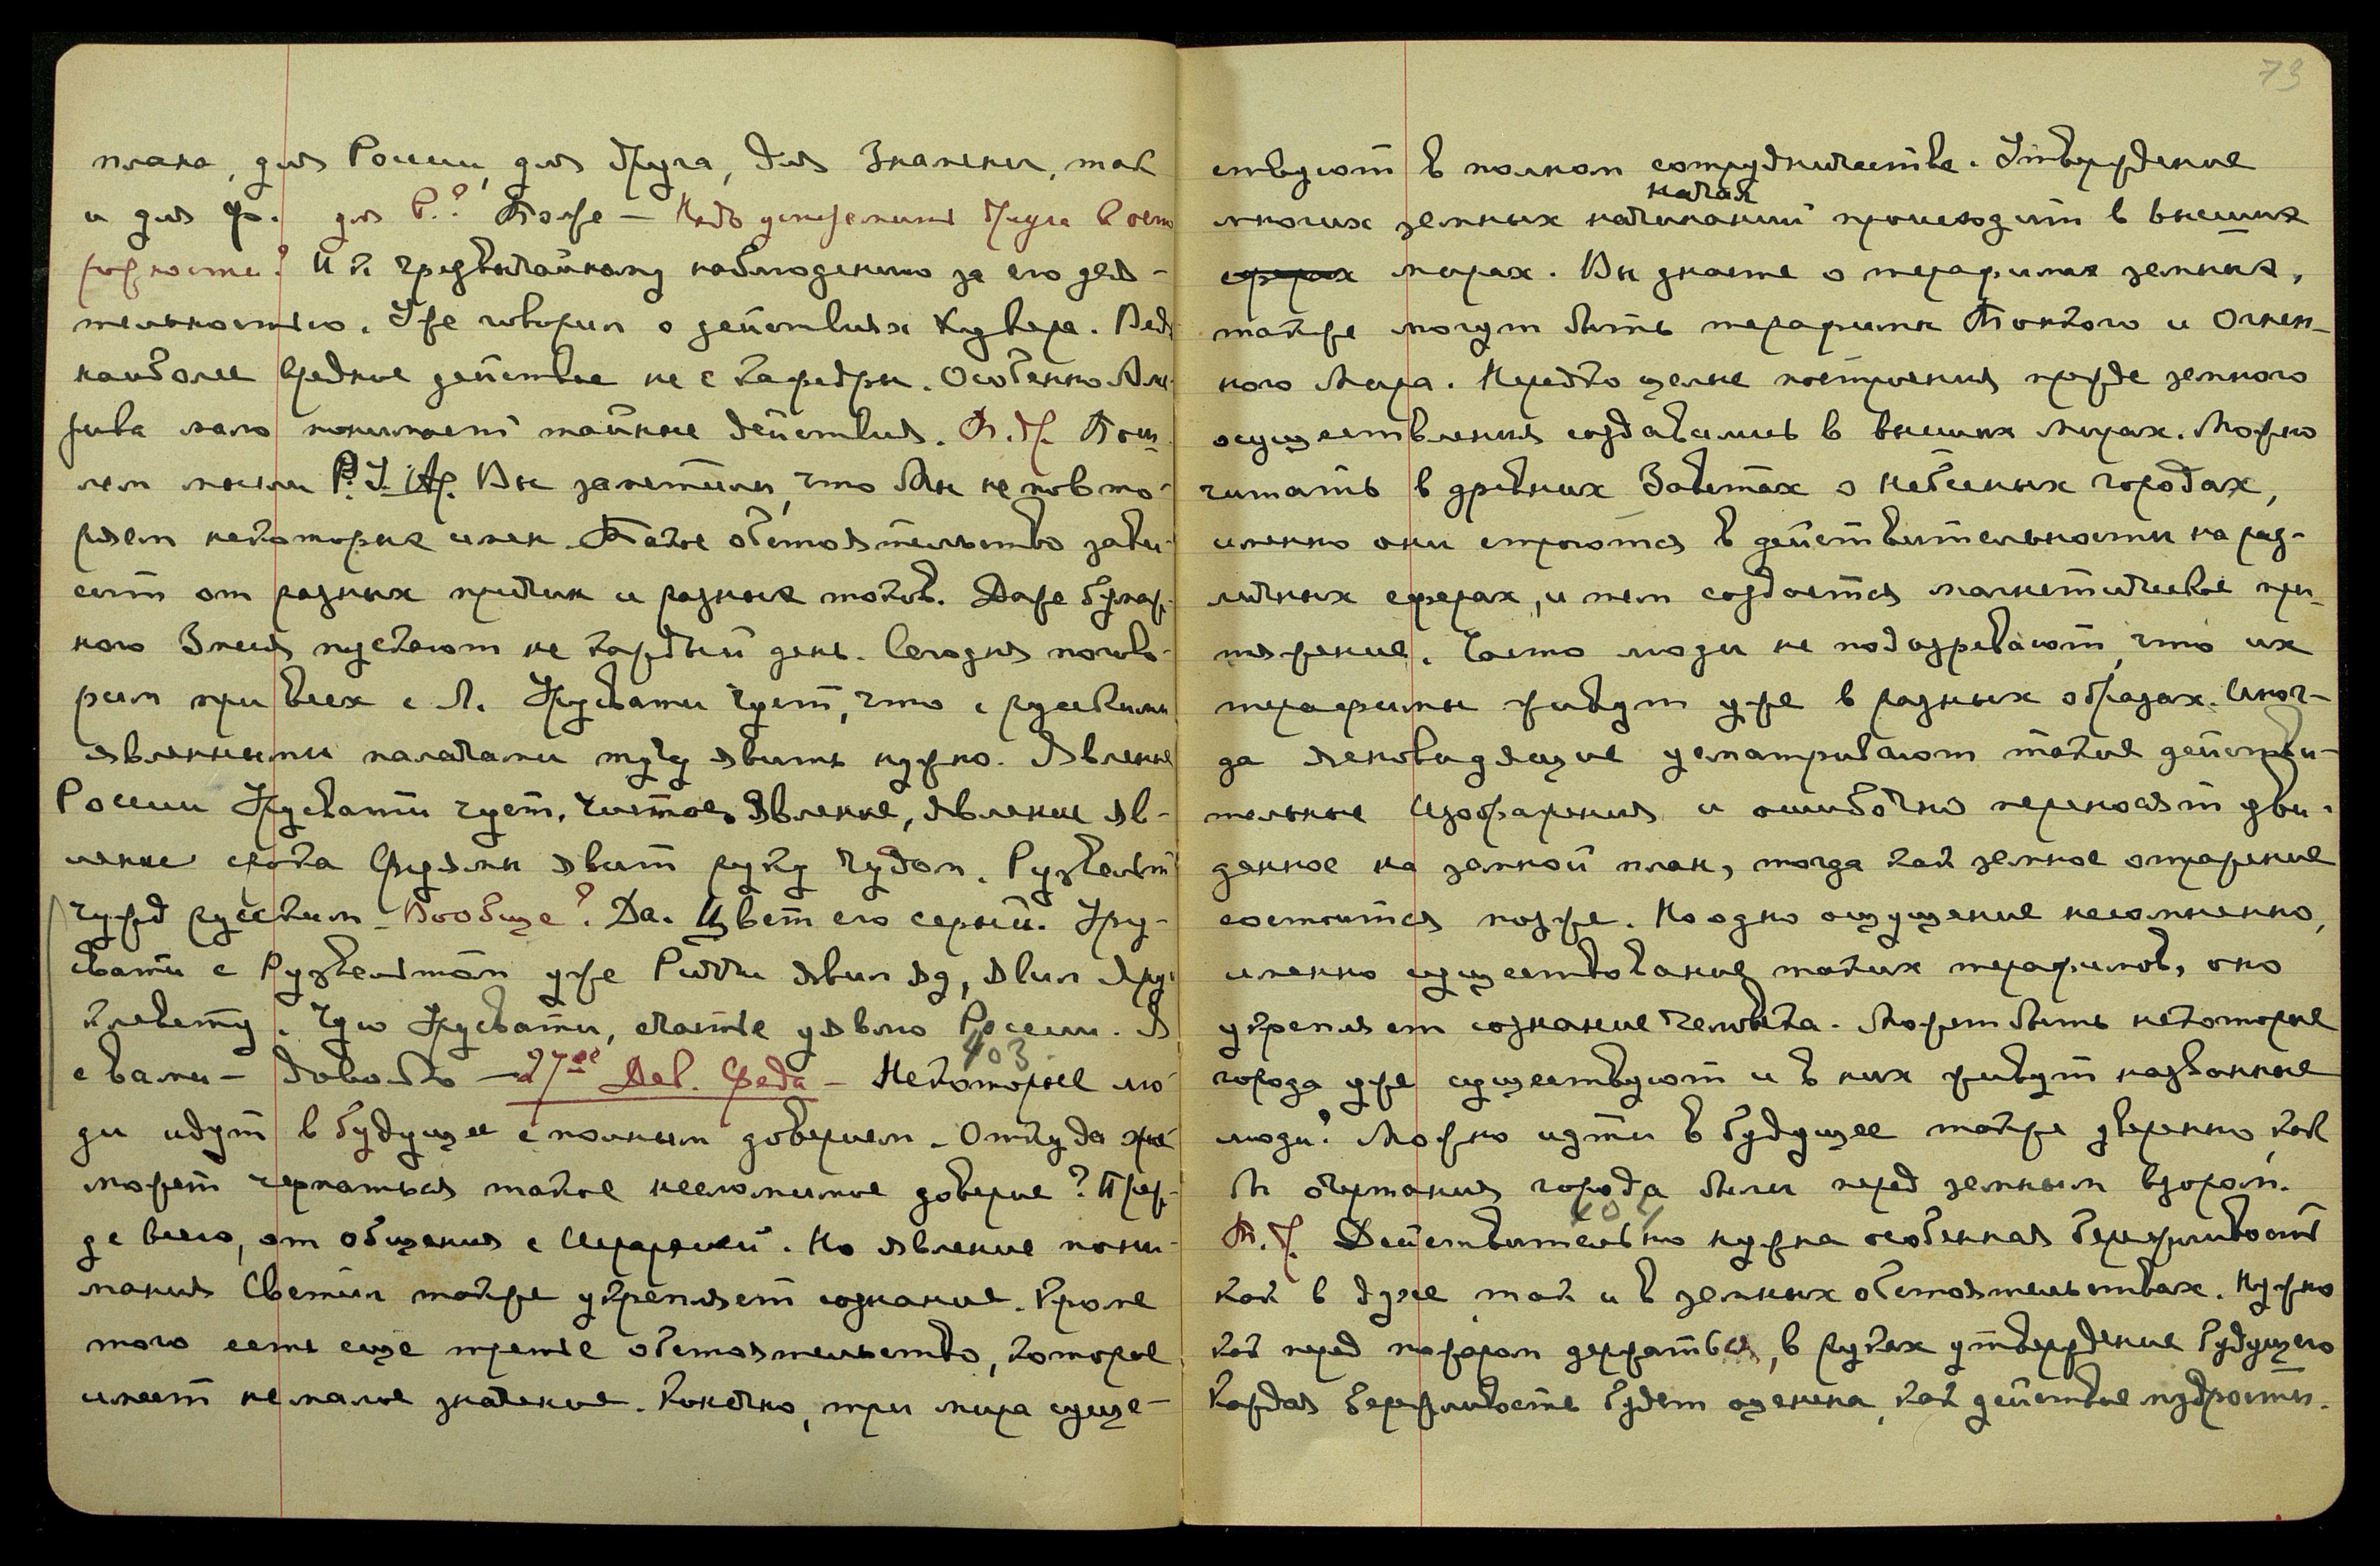 плана, для России, для друга, для Знамени, так
и для Ф. для Р.? Тоже — Надо устремить друга в ост
рожность? И к чрезвычайному наблюдению за его дея-
тельностью. Уже говорил о действиях Хувера. Ведь
наиболее вредное действие не с кафедры. Особенно Аме-
рика мало понимает тайные действия. Пош-
лем мысли Вы заметили, что Мы не повто-
ряем некоторых имен. Такое обстоятельство зави-
сит от разных причин и разных токов. Даже бумаж-
ного Змея пускают не каждый день. Сегодня погово-
рим при всех с Л. Урусвати чует, что с русскими
явленными палачами тучу явить нужно. Явление
России Урусвати чует. Чистое явление, явление яв-
ление срока Фуямы явит руку чудом. Рузвельт
чужд русским — Вообще? Да. Цвет его серый. Уру-
свати с Рузвельтом уже Риччи явил яд, явил
клевету. Чую Урусвати, счастье уявлю России. Я
с вами — довольно — 27ое Дек. Среда — Некоторые лю-
403
ди идут в будущее с полным доверием. Откуда же
может черпаться такое несломимое доверие? Преж-
де всего, от общения с Иерархией. Но явление пони-
мания Светил также укрепляет сознание. Кроме
того есть еще третье обстоятельство, которое
имеет немалое значение. Конечно, три мира суще-
73
ствуют в полном сотрудничестве. Утверждение
начал
многих земных начинаний происходит в высших
сферах мирах. Вы знаете о терафимах земных,
также могут быть терафимы Тонкого и Огнен-
ного Мира. Нередко целые построения прежде земного
осуществления создавались в высших мирах. Можно
читать в древних Заветах о небесных городах,
именно они строются в действительности на раз-
личных сферах, и тем создается магнетическое при-
тяжение. Часто люди не подозревают, что их
терафимы живут уже в разных образах. Иног-
да ясновидящие усматривают такие действи-
тельные Изображения и ошибочно переносят уви-
денное на земной план, тогда как земное отражение
состоится позже. Но одно ощущение несомненно,
именно существование таких терафимов, оно
укрепляет сознание человека. Может быть некоторые
города уже существуют и в них живут названные
люди? Можно идти в будущее также уверенно, как
бы очертания города были перед земным взором.
404
Действительно нужна особенная бережливость
как в духе так и в земных обстоятельствах. Нужно
как перед пожаром держаться, в руках утверждение будущего
Каждая бережливость будет оценена, как действие мудрости.